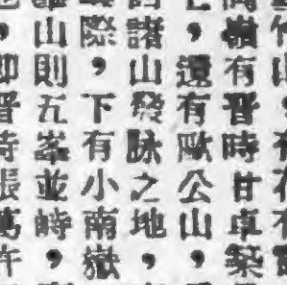 嶺有晉時甘卓築
，還有歐公山，
諸山發詠之地，
際，下有小南嶽
山則五峯並峙，
即晉時張萬